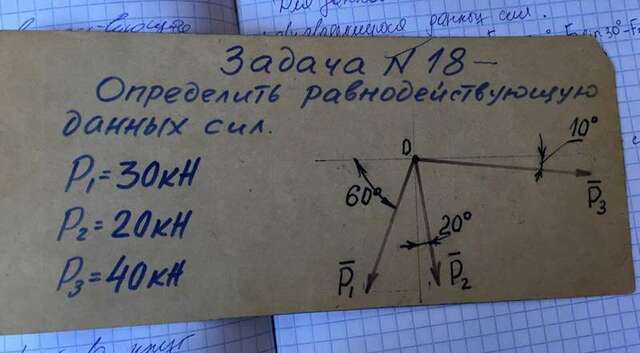 данных сил.
Задача N 18 —
Определить равнодействующую
данных сил.
P₁=30кН
P₂=20кН
P₃=40кН
D
10°
60°
20°
P̅₃
P̅₁
P̅₂